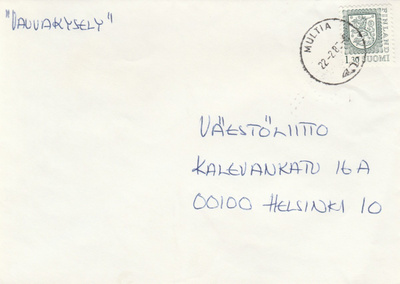 "VAUVAKYSELY"
MULTIA
FINLAND
VÄESTÖLIITTO
KALEVANKATU 16 A
00100 HELSINKI 10